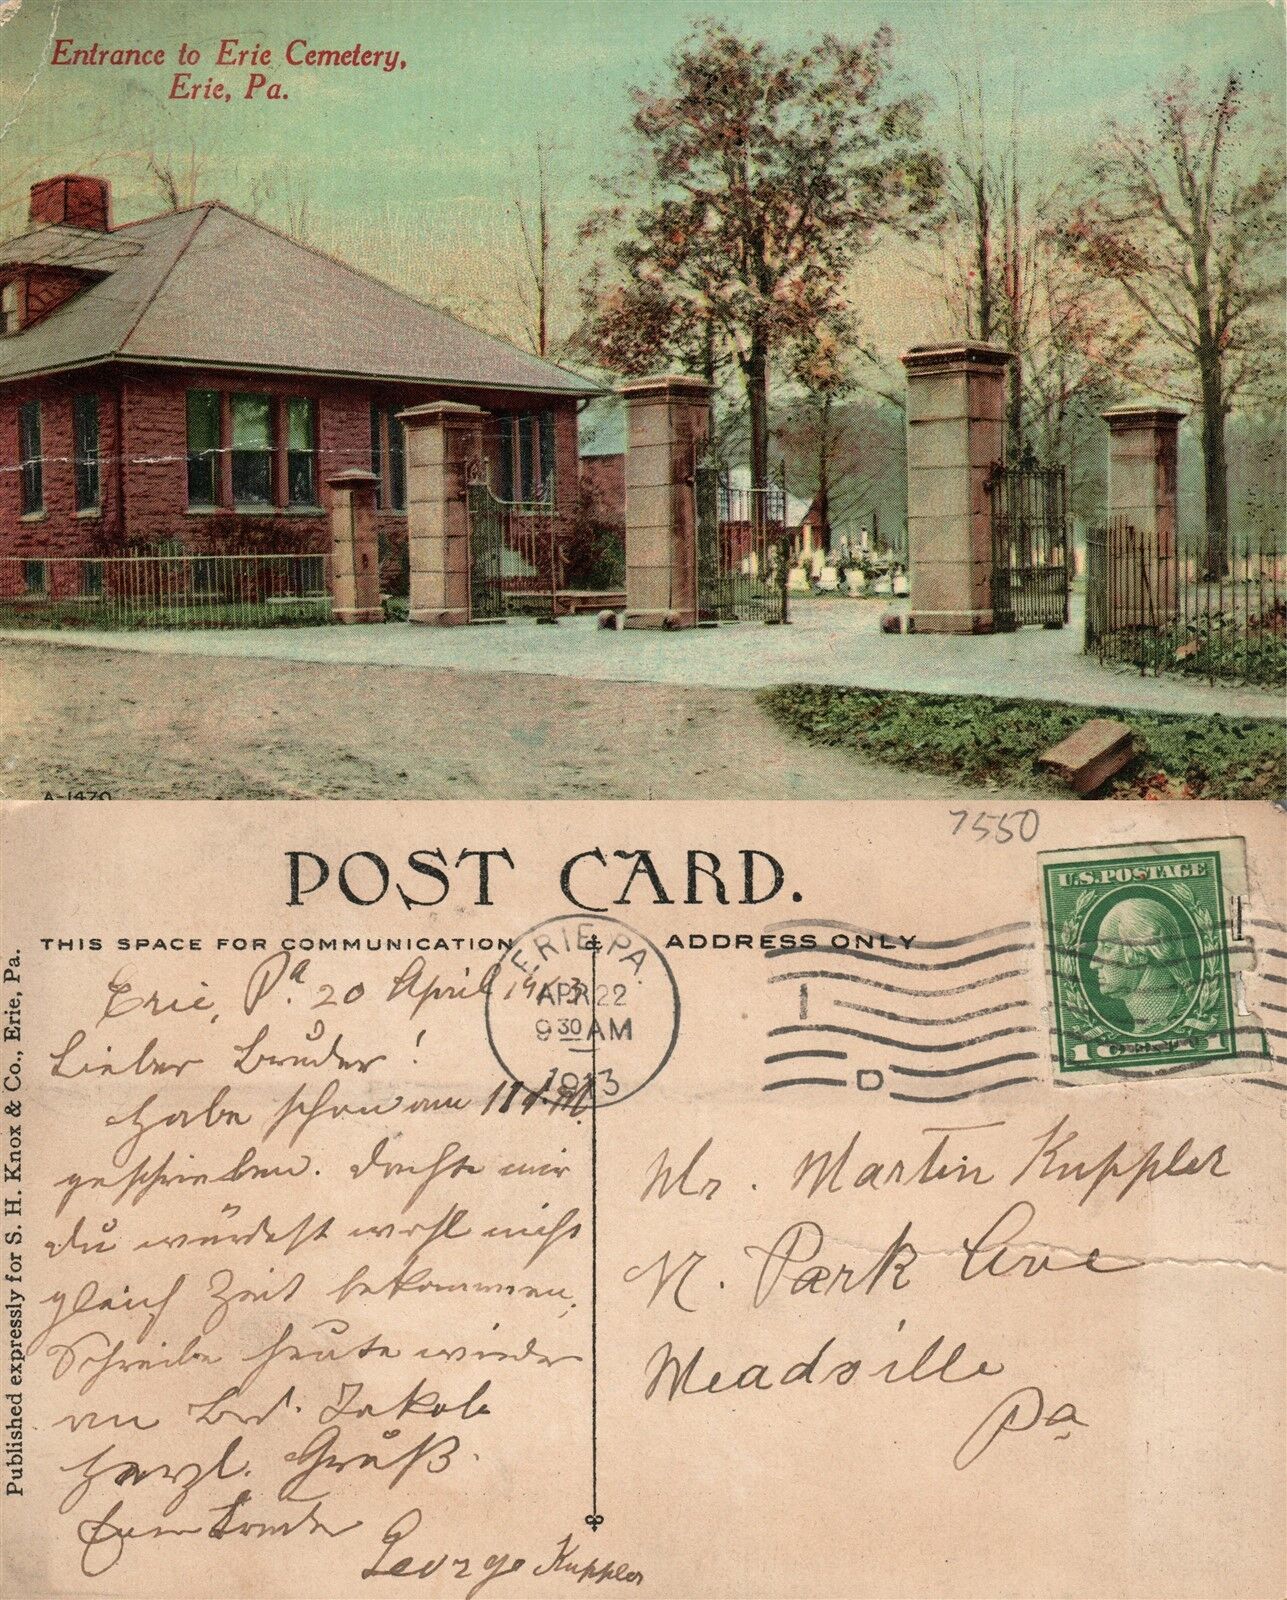 Entrance to Erie Cemetery,
Erie, Pa.
A-1470
7550
POST CARD.
THIS SPACE FOR COMMUNICATION
ADDRESS ONLY
U.S. POSTAGE
ERIE, PA.
APR 22
9 30 AM
1913
Published expressly for S. H. Knox & Co., Erie, Pa.
Erie, Pa. 20 April 1913
Lieber Bruder!
Habe schon am 11 d. M.
geschrieben. Dachte mir
du würdest wohl nicht
gleich Zeit bekommen.
Schreibe heute wieder
an Brd. Jakob
Herzl. Gruß.
Euer Bruder
George Kuppler
Mr. Martin Kuppler
N. Park Ave
Meadville
Pa